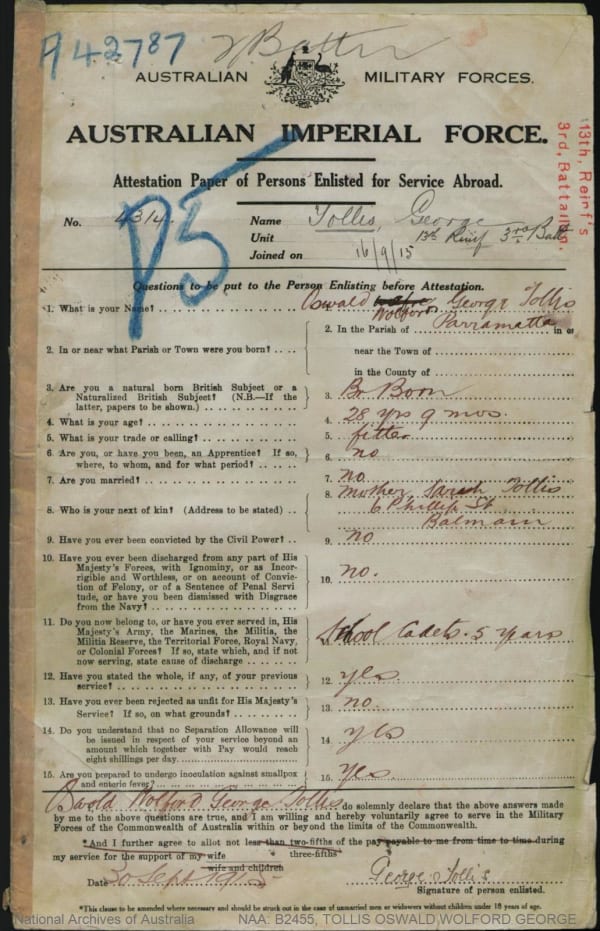 A42787
AUSTRALIAN MILITARY FORCES.
AUSTRALIAN IMPERIAL FORCE.
Attestation Paper of Persons Enlisted for Service Abroad.
13th, Reinf's
3rd, Battalion.
P5
No. 4314. Name Tollis, George
Unit 13th Reinf 3rd Batt
Joined on 16/9/15
Questions to be put to the Person Enlisting before Attestation.
1. What is your Name? Oswald Wolford George Tollis
2. In or near what Parish or Town were you born? 2. In the Parish of Parramatta in or
near the Town of
in the County of
3. Are you a natural born British Subject or a
Naturalized British Subject? (N.B.—If the
latter, papers to be shown.) 3. Br Born
4. What is your age? 4. 28 yrs 9 mos.
5. What is your trade or calling? 5. fitter
6. Are you, or have you been, an Apprentice? If so,
where, to whom, and for what period? 6. no
7. Are you married? 7. no
8. Who is your next of kin? (Address to be stated) 8. mother, Sarah Tollis
6 Phillip St
Balmain
9. Have you ever been convicted by the Civil Power? 9. no
10. Have you ever been discharged from any part of His
Majesty's Forces, with Ignominy, or as Incor-
rigible and Worthless, or on account of Convic-
tion of Felony, or of a Sentence of Penal Servi-
tude, or have you been dismissed with Disgrace
from the Navy? 10. no.
11. Do you now belong to, or have you ever served in, His
Majesty's Army, the Marines, the Militia, the
Militia Reserve, the Territorial Force, Royal Navy,
or Colonial Forces? If so, state which, and if not
now serving, state cause of discharge 11. School Cadets. 5 years
12. Have you stated the whole, if any, of your previous
service? 12. yes
13. Have you ever been rejected as unfit for His Majesty's
Service? If so, on what grounds? 13. no.
14. Do you understand that no Separation Allowance will
be issued in respect of your service beyond an
amount which together with Pay would reach
eight shillings per day. 14. yes
15. Are you prepared to undergo inoculation against smallpox
and enteric fever? 15. yes
Oswald Wolford George Tollis do solemnly declare that the above answers made
by me to the above questions are true, and I am willing and hereby voluntarily agree to serve in the Military
Forces of the Commonwealth of Australia within or beyond the limits of the Commonwealth.
*And I further agree to allot not less than two-fifths of the pay payable to me from time to time during
three-fifths
my service for the support of my wife
wife and children
Date 30 Sept 1915 George Tollis
Signature of person enlisted.
*This clause to be amended where necessary and should be struck out in the case of unmarried men or widowers without children under 18 years of age.
National Archives of Australia NAA: B2455, TOLLIS OSWALD WOLFORD GEORGE